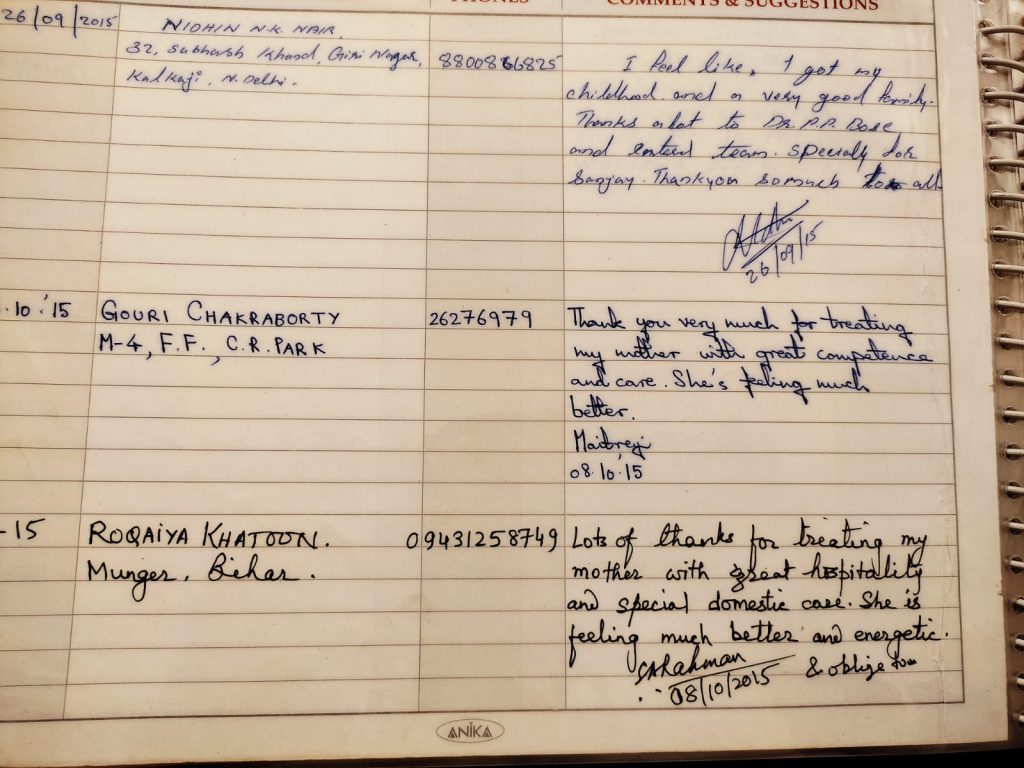 PHONES
COMMENTS & SUGGESTIONS
26/09/2015
NIDHIN N.K. NAIR.
32, Subhash Khand, Giri Nagar,
Kalkaji, N. Delhi.
8800866825
I feel like, I got my
childhood and a very good family.
Thanks a lot to Dr. P.P. Bose
and enteed team. specialy for
Sanjay. Thankyou somuch to all
26/09/15
.10.'15
GOURI CHAKRABORTY
M-4, F.F., C.R. PARK
26276979
Thank you very much for treating
my mother with great competence
and care. She's feeling much
better.
Maitreyi
08.10.15
-15
ROQAIYA KHATOON.
Munger, Bihar.
09431258749
Lots of thanks for treating my
mother with great hospitality
and special domestic care. She is
feeling much better and energetic.
SARahman
& oblige
08/10/2015
ANIKA